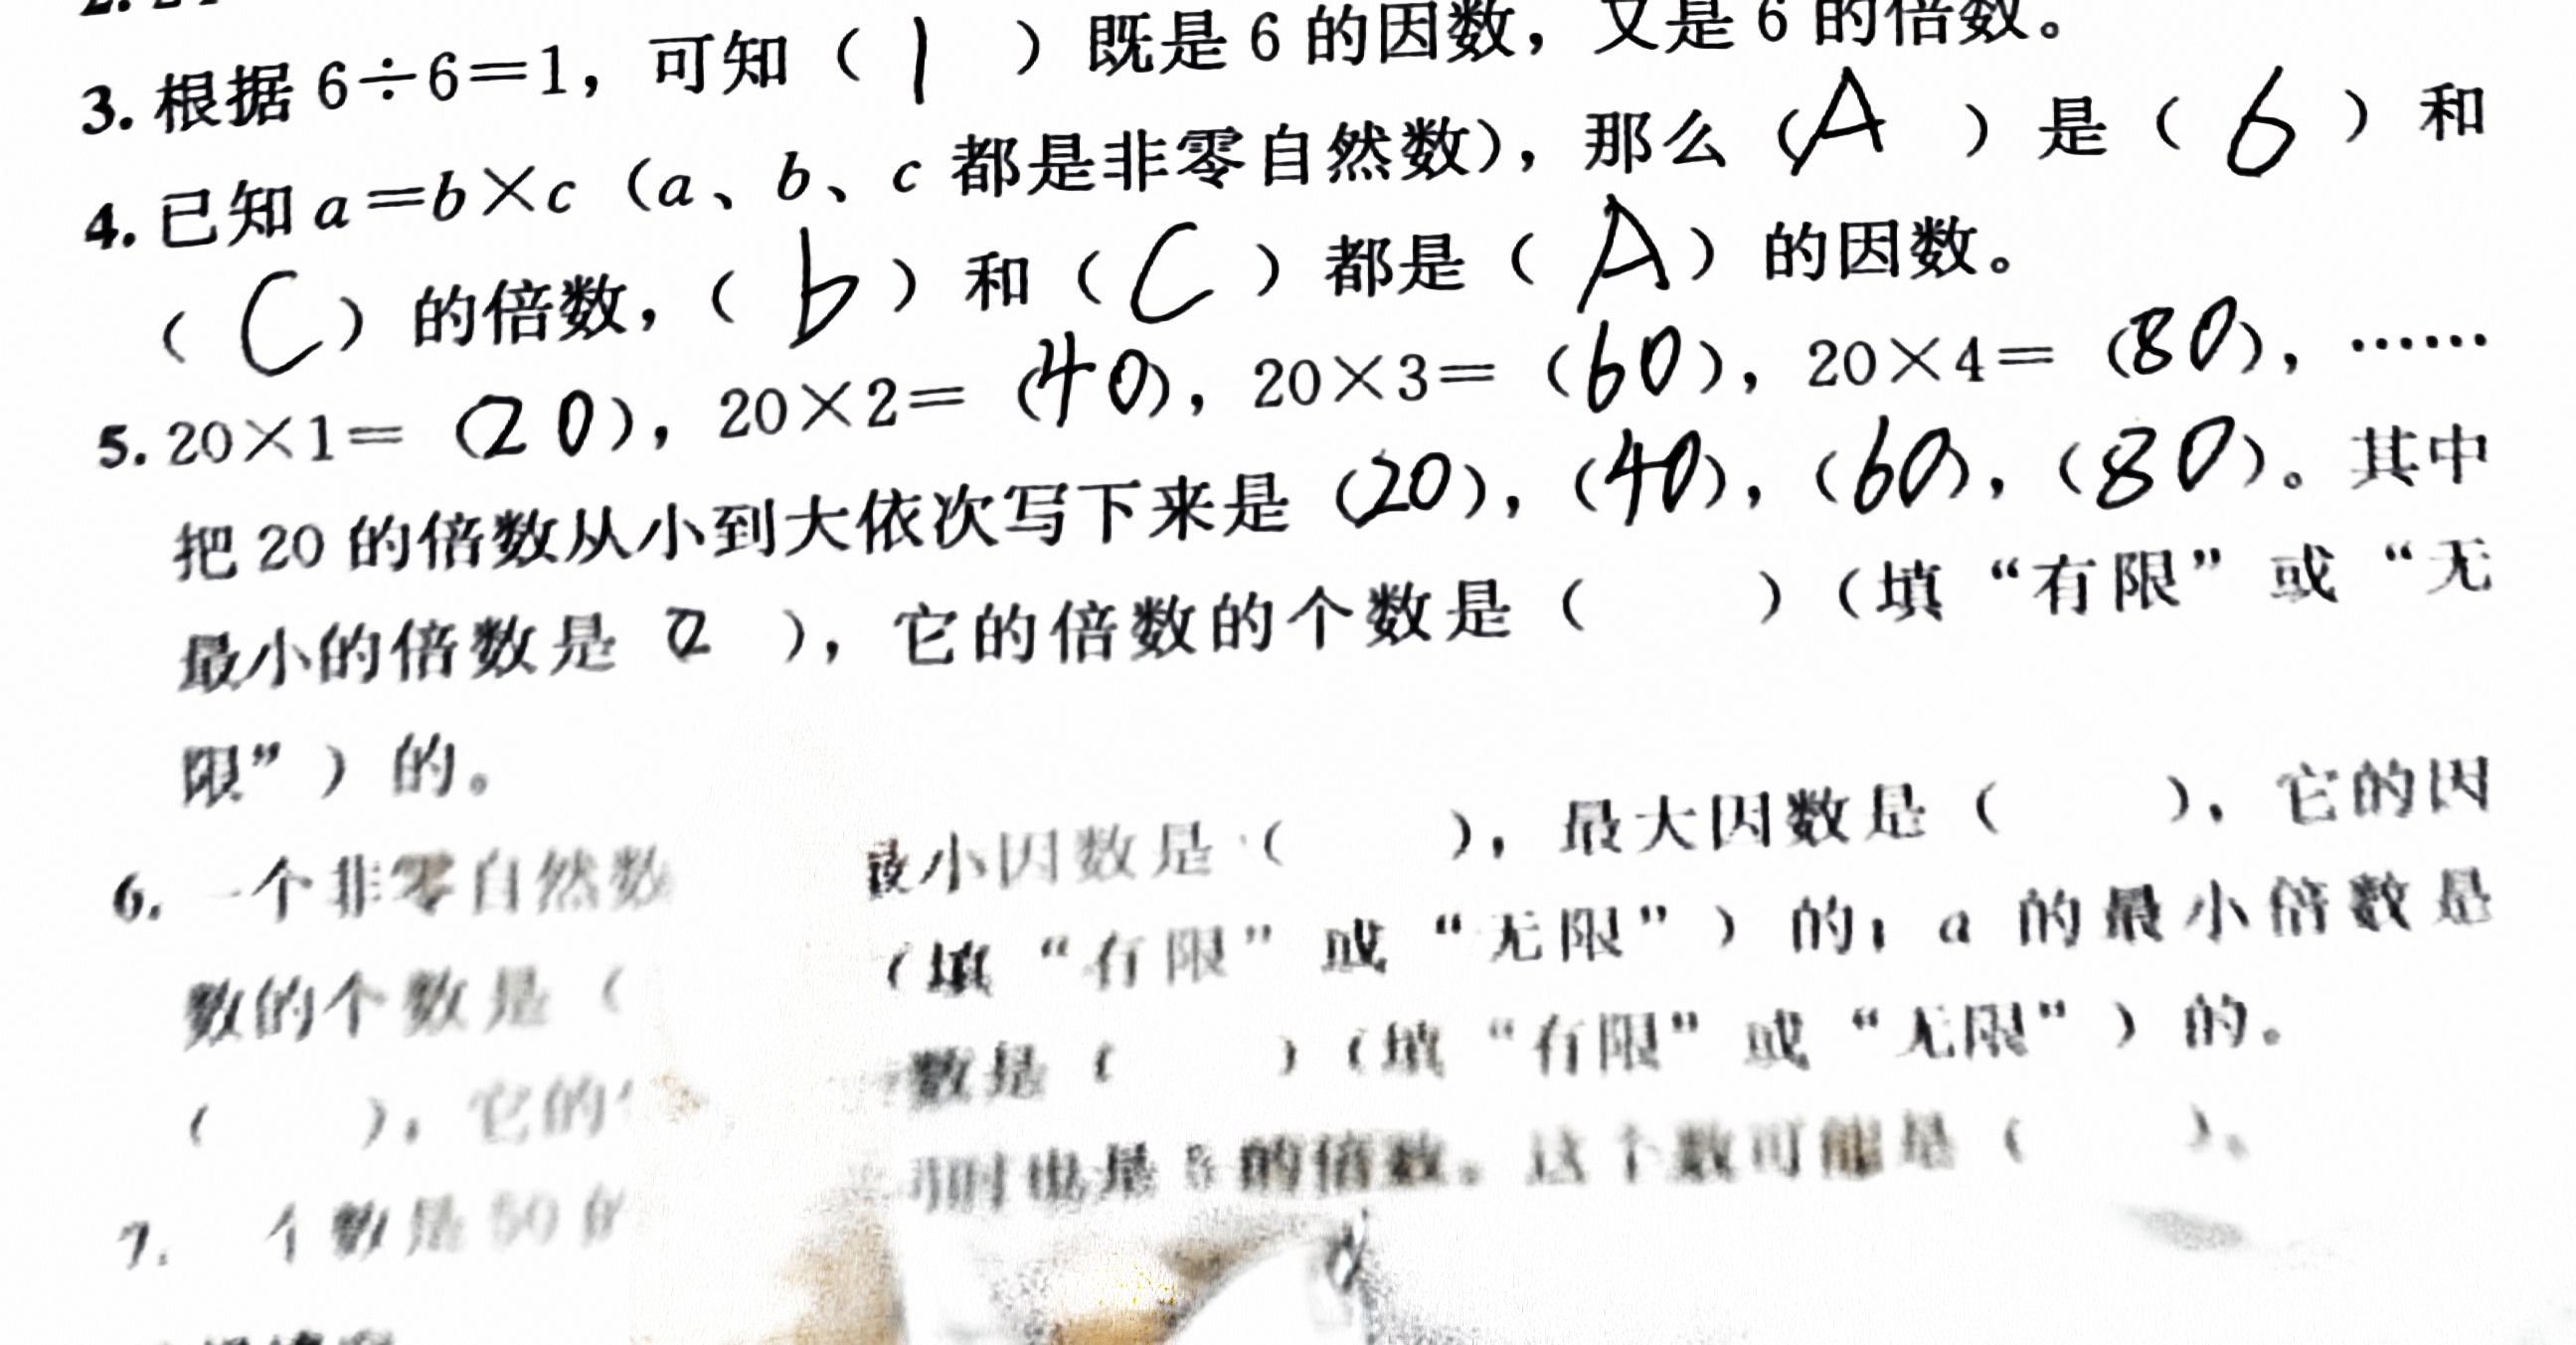 3. 根据 6÷6=1，可知（ 1 ）既是 6 的因数，又是 6 的倍数。
4. 已知 a=b×c（a、b、c 都是非零自然数），那么（A ）是（ 6 ）和
（ C ）的倍数，（ b ）和（ C ）都是（ A ）的因数。
5. 20×1=（20），20×2=（40），20×3=（60），20×4=（80），……
把 20 的倍数从小到大依次写下来是（20），（40），（60），（80）。其中
最小的倍数是 2 ），它的倍数的个数是（ ）（填“有限”或“无
限”）的。
6. 一个非零自然数 最小因数是（ ），最大因数是（ ），它的因
数的个数是（ （填“有限”或“无限”）的；a 的最小倍数是
（ ），它的 数是（ ）（填“有限”或“无限”）的。
7. 个数是 50 的 同时也是 的倍数。这个数可能是（ ）。